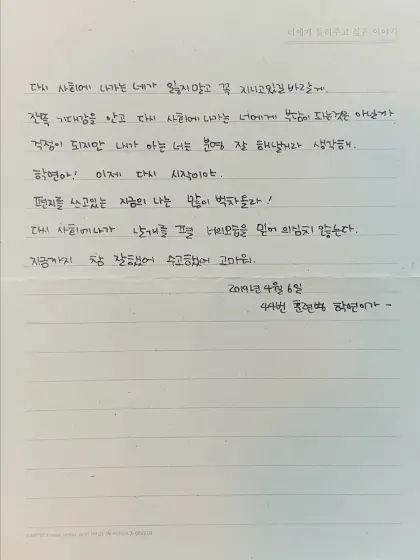 너에게 들려주고 싶은 이야기
다시 사회에 나가는 네가 잃지말고 꼭 지니고있길 바랄게.
잔뜩 기대감을 안고 다시 사회에 나가는 너에게 부담이 되는것은 아닐까
걱정이 되지만 내가 아는 너는 분명 잘 해낼거라 생각해.
학연아! 이제 다시 시작이야.
편지를 쓰고있는 지금의 나는 많이 벅차올라!
다시 사회에나가 날개를 펼 너의모습을 믿어 의심치 않는다.
지금까지 참 잘했어 수고했어 고마워.
2019년 4월 6일
44번 훈련병 학연이가 -